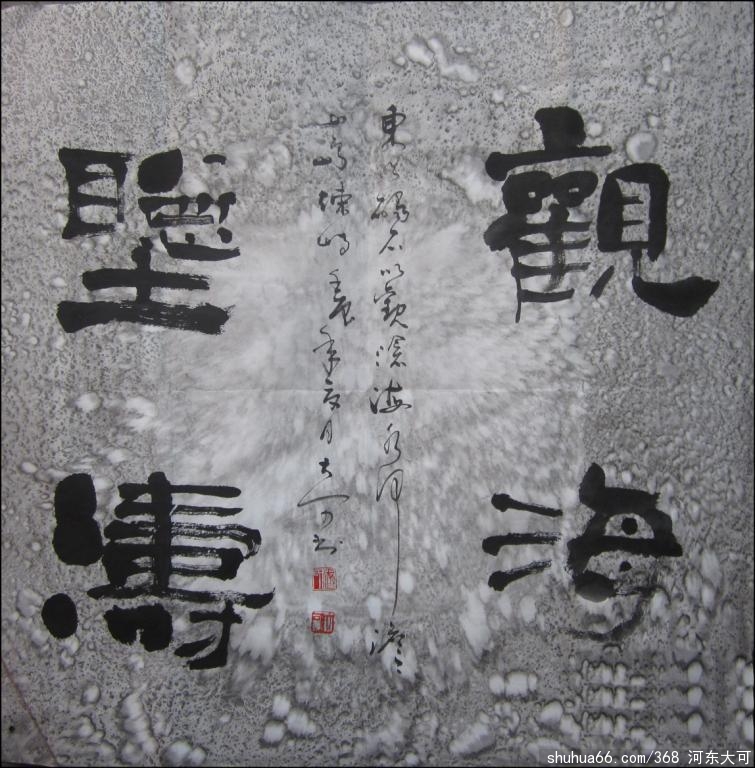 觀海
東臨碣石以觀滄海水何澹々
山島竦峙壬辰年夏月大可书
聽濤
shuhua66.com/368 河东大可